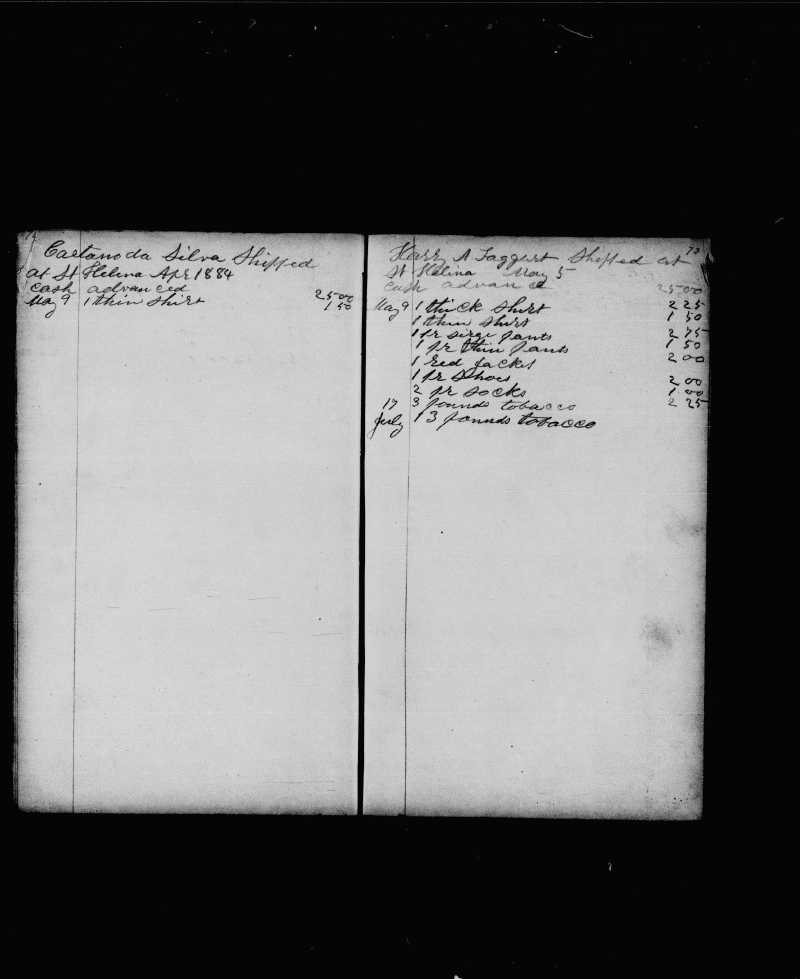 Caetano da Silva Shipped
at St Helena Apr 1884
cash advanced 25 00
May 9 1 thin shirt 1 50
73
Harry A Taggert Shipped at
St Helina May 5
cash advanced 25 00
May 9 1 thick shirt 2 25
1 thin shirt 1 50
1 pr sirge pants 2 75
1 pr thin pants 1 50
1 red jacket 2 00
1 pr shoes 2 00
2 pr socks 1 00
17 3 pounds tobacco 2 25
July 13 pounds tobacco